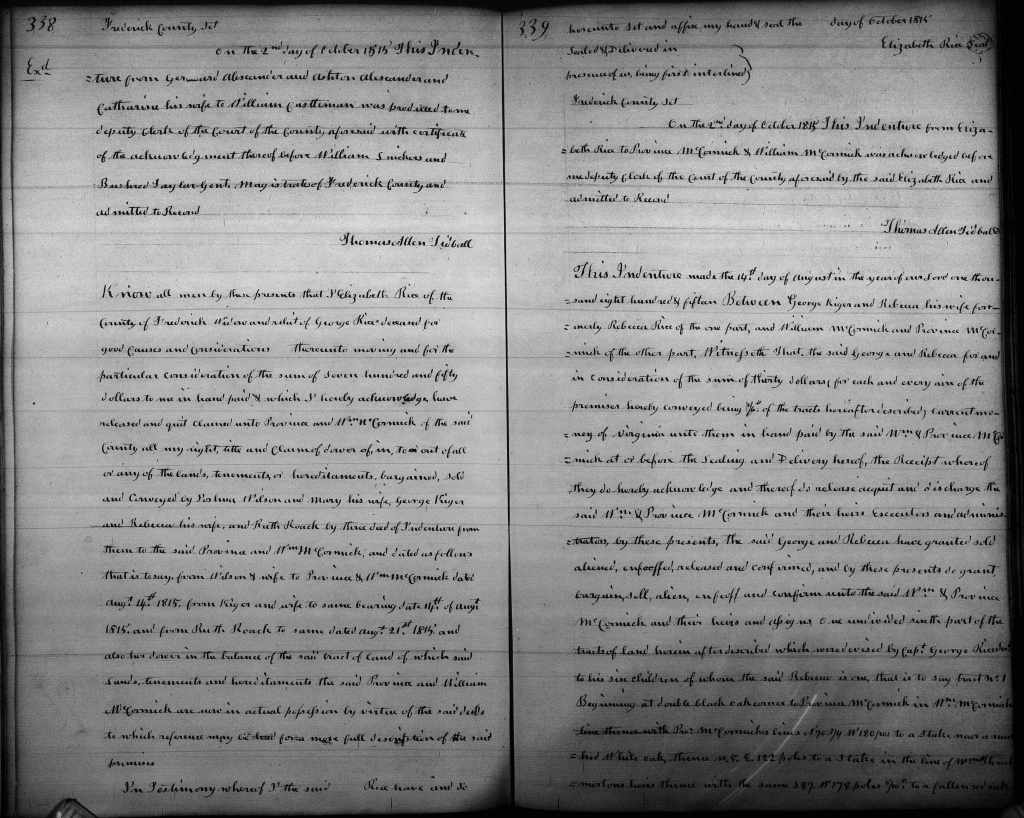 338
Frederick County Sct
On the 2nd day of October 1815 This Inden-
Exd
=ture from Gerrard Alexander and Ashton Alexander and
Catharine his wife to William Castleman was produced to me
deputy Clerk of the Court of the County aforesaid with certificate
of the acknowledgment thereof before William and
Bushrod Taylor Gent. Magistrates of Frederick County and
admitted to Record
Thomas Allen Tidball
Know all men by these presents that I Elizabeth Rice of the
County of Frederick Widow and relict of George Rice deceased for
good causes and considerations thereunto moving and for the
particular consideration of the sum of seven hundred and fifty
dollars to me in hand paid & which I hereby acknowledge, have
released and quit claimed unto Province and Wm McCormick of the said
County all my right, title and Claim of dower of, in, to or out of all
or any of the lands, tenements, or hereditaments, bargained, sold
and Conveyed by Joshua Wilson and Mary his wife, George Kiger
and Rebecca his wife, and Ruth Roach by three deed of Indenture from
them to the said Province and Wm McCormick, and dated as follows
that is to say, from Wilson & wife to Province & Wm McCormick dated
Augt 14th 1815. from Kiger and wife to same bearing date 14th of Augt
1815. and from Ruth Roach to same dated Augt 21st 1815 and
also her dower in the balance of the said tract of land of which said
Lands, tenements and hereditaments the said Province and William
McCormick are now in actual possession by virtue of the said deeds
to which reference may be had for a more full description of the said
premises
In Testimony whereof I the said Rice have and do
339
hereunto set and affix my hand & seal the day of October 1815
Sealed & Delivered in
Elizabeth Rice Seal
presence of us, being first interlined
Frederick County Sct
On the 2nd day of October 1815 This Indenture from Eliza-
=beth Rice to Province McCormick & William McCormick was acknowledged before
me deputy Clerk of the Court of the County aforesaid by the said Elizabeth Rice and
admitted to Record
Thomas Allen Tidball
This Indenture made the 14th day of August in the year of our Lord one thou-
=sand eight hundred & fifteen Between George Kiger and Rebecca his wife for-
=merly Rebecca Rice of the one part, and William McCormick and Province McCor-
=mick of the other part, Witnesseth That, the said George and Rebecca for and
in consideration of the sum of thirty dollars (for each and every acre of the
premises hereby conveyed being of the tracts hereafter described) current mo-
=ney of Virginia unto them in hand paid by the said Wm & Province McCor
=mick at or before the Sealing and Delivery hereof, the Receipt whereof
they do hereby acknowledge and thereof do release acquit and discharge the
said Wm & Province McCormick and their heirs Executors and adminis
=trators, by these presents, the said George and Rebecca have granted sold
aliened, enfeoffed, released and confirmed, and by these presents do grant
bargain, sell, alien, enfeoff and confirm unto the said Wm & Province
McCormick and their heirs and assigns One undivided sixth part of the
tracts of land herein after described which were devised by Capt George Rice
to his six children of whom the said Rebecca is one, that is to say tract No 1
Beginning at double black oak corner to Province McCormick in Wm McCormicks
line thence with McCormicks lines N 70 1/4 W 180 pos to a stake near a
red White oak, thence N. 5. E. 122 poles to a stake in the line of
mortons heirs thence with the same S 87. W 178 poles to a fallen red oak